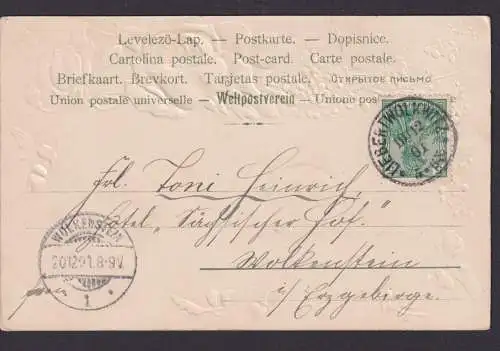 Levelező-Lap. — Postkarte. — Dopisnice.
Cartolina postale. Post-card. Carte postale.
Briefkaart. Brevkort. Tarjetas postale. Открытое письмо
Union postale universelle — Weltpostverein — Unione postale
LIEBERTWOLKWITZ
12
01
Frl. Toni Heinrich,
Hotel „Sächsischer Hof."
Wolkenstein
i/ Erzgebirge.
WOLKENSTEIN
20 12 01. 8-9V.
1